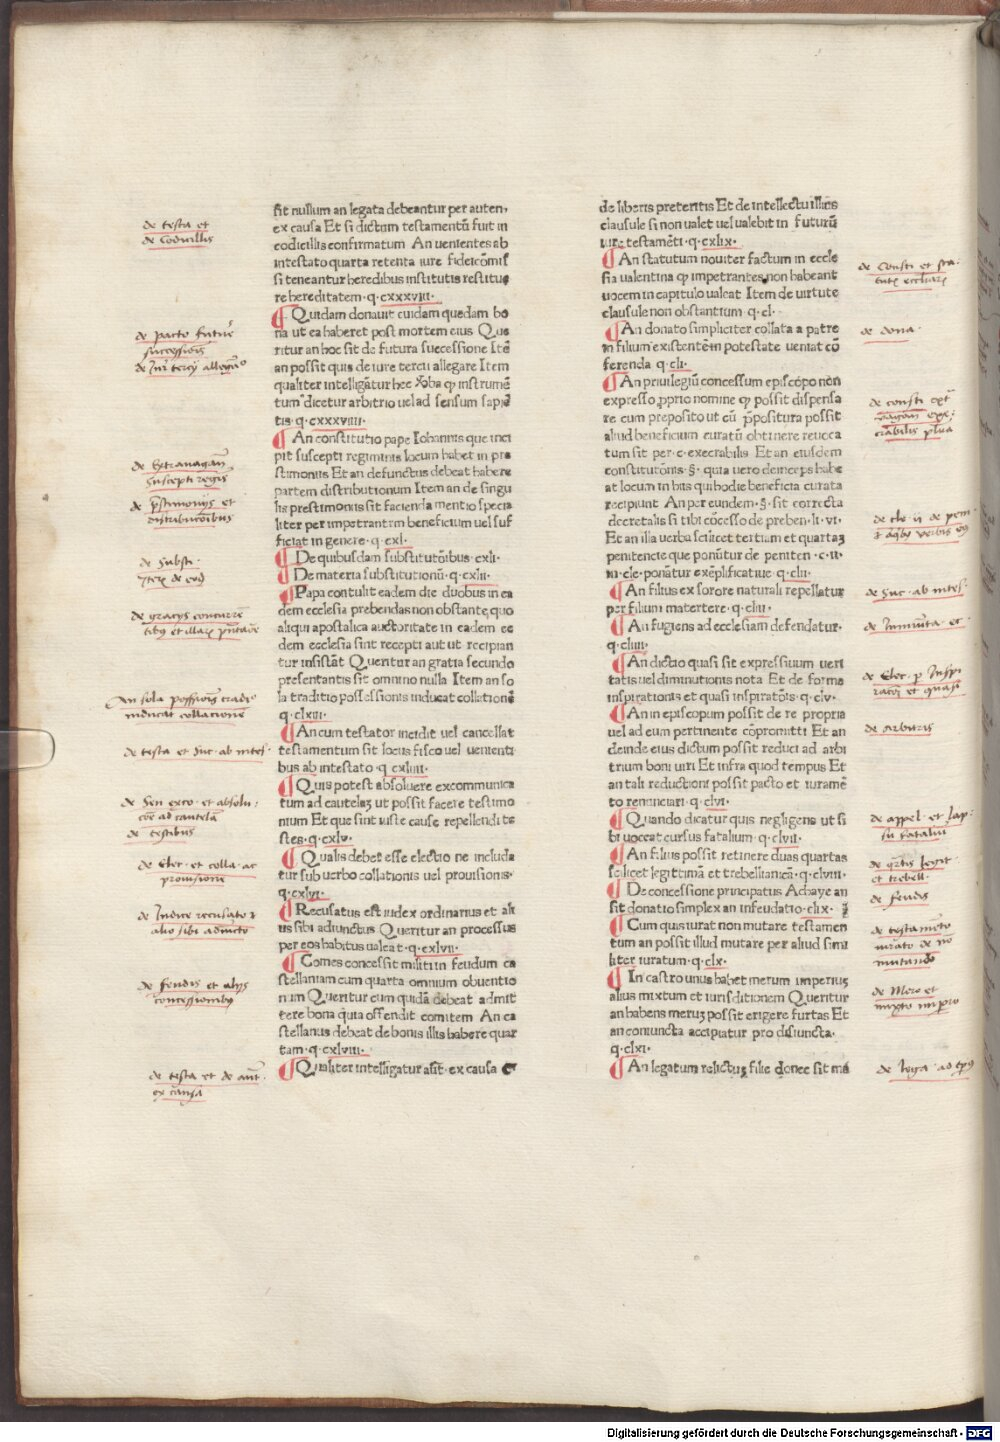 sit nullum an legata debeantur per auten⸗
ex causa Et si dictum testamentū fuit in
codicillis confirmatum An uenientes ab
intestato quarta retenta iure fideicōmis
si teneantur heredibus institutis restitue
re hereditatem·q·cxxxviii·
¶ Quidam donauit cuidam quedam bo
na ut ea haberet post mortem eius Que
ritur an hoc sit de futura successione Itē
an possit quis de iure tercii allegare Item
qualiter intelligātur hec ꝟba ꝙ instrumē
tum dicetur arbitrio uel ad sensum sapiē
tis·q·cxxxviiii·
¶ An constitutio pape Iohannis que inci
pit suscepti regiminis locum habet in pre
stimoniis Et an defunctus debeat habere
partem distributionum Item an de singu
lis prestimoniis sit facienda mentio specia
liter per impetrantem beneficium uel suf
ficiat in genere·q·cxl·
¶ De quibusdam substitutōnibus·cxli·
¶ De materia substitutionū·q·cxlii·
¶ Papa contulit eadem die duobus in ea
dem ecclesia prebendas non obstante quo
aliqui apostalica auctoritate in eadem ec
dem ecclesia sint recepti aut ut recipian
tur insistāt Queritur an gratia secundo
presentantis sit omnino nulla Item an so
la traditio possessionis inducat collationē
q·clxiii·
¶ An cum testator incidit uel cancellat
testamentum sit locus fisco uel uenienti
bus ab intestato·q·cxliiii·
¶ Quis potest absoluere excommunica
tum ad cautelaꝫ ut possit facere testimo
nium Et que sint iuste cause repellendi te
stes·q·cxlv·
¶ Qualis debet esse electio ne includa
tur sub uerbo collationis uel prouisionis·
q·cxlvi·
¶ Recusatus est iudex ordinarius et ali
us sibi adiunctus Queritur an processus
per eos habitus ualeat·q·cxlvii·
¶ Comes concessit militi in feudum ca
stellaniam cum quarta omnium obuentio
num Queritur cum quidā debeat admit
tere bona quia offendit comitem An ca
stellanus debeat de bonis illis habere quar
tam·q·cxlviii·
¶ Qualiter intelligatur aūt·ex causa C
de liberis preteritis Et de intellectu illius
clausule si non ualet uel ualebit in futurū
iure testamēti·q·cxlix·
¶ An statutum nouiter factum in eccle
sia ualentina ꝙ impetrantes non habeant
uocem in capitulo ualeat Item de uirtute
clausule non obstantium·q·cl·
¶ An donato simpliciter collata a patre
in filium existentē in potestate ueniat cō
ferenda q·cli·
¶ An priuilegiū concessum episcopo non
expresso ꝓprio nomine ꝙ possit dispensa
re cum preposito ut cū p̄positura possit
aliud beneficium curatū obtinere reuoca
tum sit per·c·execrabilis Et an eiusdem
constitutōnis·§·quia uero deinceps habe
at locum in his qui hodie beneficia curata
recipiunt An per eundem·§·sit correcta
decretalis si tibi cōcesso de preben·li·vi·
Et an illa uerba scilicet tertium et quartaꝫ
penitencie que ponūtur de peniten·c·ii·
in·cle·ponātur exēplificatiue·q·clii·
¶ An filius ex sorore naturali repellatur
per filium matertere·q·cliii·
¶ An fugiens ad ecclesiam defendatur·
q·cliiii·
¶ An dictio quasi sit expressiuum ueri
tatis uel diminutionis nota Et de forma
inspirationis et quasi inspiratōis·q·clv·
¶ An in episcopum possit de re propria
uel ad eum pertinente cōpromitti Et an
deinde eius dictum possit reduci ad arbi
trium boni uiri Et infra quod tempus Et
an tali reductioni possit pacto et iuramē
to renunciari·q·clvi·
¶ Quando dicatur quis negligens ut si
bi uoccat cursus fatalium·q·clvii·
¶ An filius possit retinere duas quartas
scilicet legittimā et trebellianicā·q·clviii·
¶ De concessione principatus Achaye an
sit donatio simplex an infeudatio·clix·
¶ Cum quis iurat non mutare testamen
tum an possit illud mutare per aliud simi
liter iuratum·q·clx·
¶ In castro unus habet merum imperiuꝫ
alius mixtum et iurisditionem Queritur
an habens meruꝫ possit erigere furcas Et
an coniuncta accipiatur pro disiuncta·
q·clxi·
¶ An legatum relictuꝫ filie donec sit ma
de testa et
de Codicillis
de pacto future
successionis
de extravagan̄
suscepti regis
distributōibus
de Substi·
inducat collacione
de testa et suc·ab intes·
de Sen exco·et absolu·
de testibus
de Elec·et colla·ac
provisione
de Iudice recusato ⁊
alio sibi adiuncto
de feudis et alijs
concessionibus
de testa et de aut
ex causa
de dona·
de Suc·ab intes·
de Inmunita ec
de arbitris
de appel·et lap·
et trebell·
de feudis
de testamēto
iurato de no
mutando
de Mero et
mixto impio
Digitalisierung gefördert durch die Deutsche Forschungsgemeinschaft - DFG